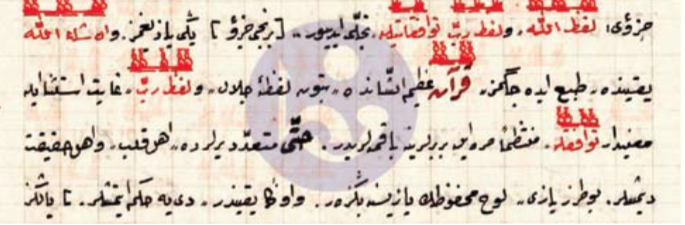 جزؤی؛ لفظ الله، ولفظ ربّ توافقاتیله تجلّی ایدییور.. [برنجی جزؤ] یکی یازدیغمز. وان شاء الله
یقینده طبع ایده جگمز. قرآن عظیم الشانده، بتون لفظهٔ جلال، ولفظ ربّ، غایت استثنا ایله
معنیدار توافقله. منتظماً صره ایله بربرلرینه باقمه لریدر. حتّی متعدّد یرلرده. اهل قلب، واهل حقیقت
دیمشلر. بوطرز یازی. لوح محفوظك یازیسنه بکزر.. واوکا یقیندر. دی یه حکم ایتمشلر. تا یالکز